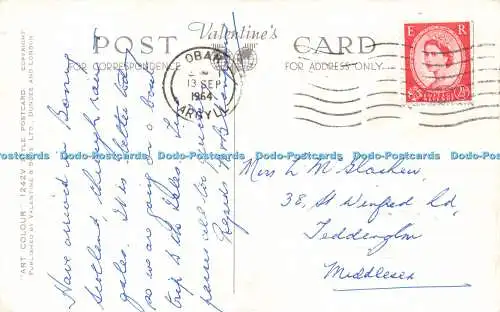 POST Valentine's CARD
FOR CORRESPONDENCE
FOR ADDRESS ONLY
OBAN
13 SEP
1964
ARGYLL
E R
Have arrived in Bonny
Scotland, through rain &
gales. It is better today
so we are going on a boat
trip to the Isles.
pass all the
Regards Bob
Miss L M
38, St Winifred Rd
Teddington
Middlesex
"ART COLOUR" 1242V POSTCARD COPYRIGHT
PUBLISHED BY VALENTINE & SONS LTD., DUNDEE AND LONDON
Dodo-Postcards Dodo-Postcards Dodo-Postcards Dodo-Postcards Dodo-Postcards Dodo-Postcards